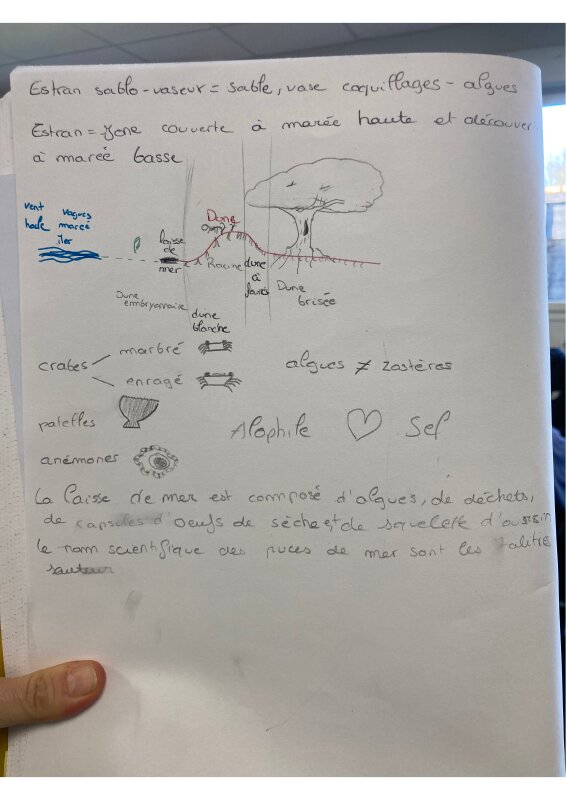 Estran sablo-vaseur = sable, vase coquillages - algues
Estran = zone couverte à marée haute et découver.
à mareé basse
vent vagues
hale mareé
Dune
laisse
de
mer
Racine
dune
à
Dune
brisée
Dune
embryonnaire
dune
blanche
crabes
marbré
enragé
algues ≠ zostères
patelles
Alophile ♡ Sel
anémones
La laisse de mer est composé d'algues, de déchets,
de capsules d'oeufs de sèche et de squelette d'oursin
le nom scientifique des puces de mer sont les talitres
sauteur